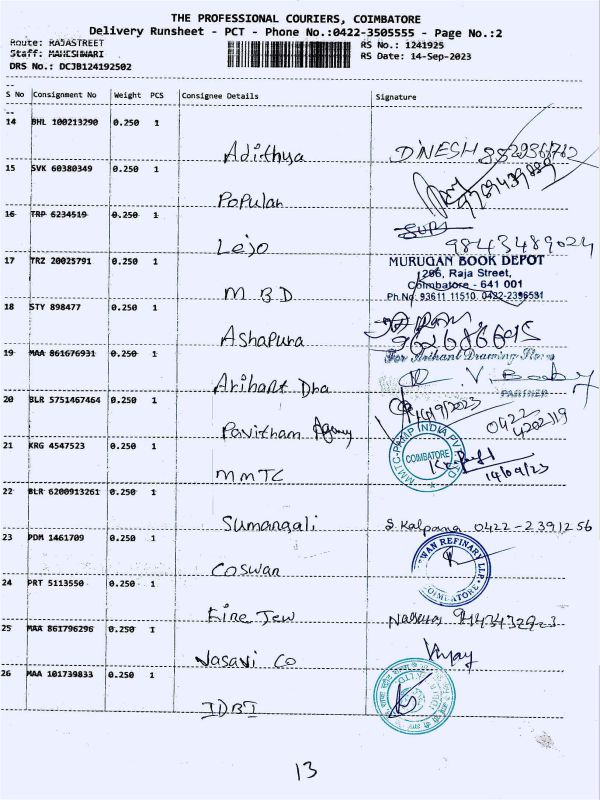 THE PROFESSIONAL COURIERS, COIMBATORE
Delivery Runsheet - PCT - Phone No.:0422-3505555 - Page No.:2
Route: RAJASTREET
RS No.: 1241925
Staff: MAHESHWARI
RS Date: 14-Sep-2023
DRS No.: DCJB124192502
S No Consignment No Weight PCS Consignee Details Signature
14 BHL 100213290 0.250 1
Adithya DINESH
15 SVK 60380349 0.250 1
Popular
16 TRP 6234519 0.250 1
Lejo 9843489024
17 TRZ 20025791 0.250 1
MURUGAN BOOK DEPOT
286, Raja Street,
Coimbatore - 641 001
MBD Ph.No. 93611 11510, 0422-2396531
18 STY 898477 0.250 1
Ashapura 9626866695
19 MAA 861676931 0.250 1
For Arihant Drawing Stores
Arihant Dra
PARTNER
20 BLR 5751467464 0.250 1
14/9/2023
0422
4202119
Pavitham Agency
21 KRG 4547523 0.250 1
MMTC-PAMP INDIA PVT LTD
COIMBATORE
MMTC 14/09/23
22 BLR 6200913261 0.250 1
Sumangali S. Kalpana 0422-2391256
23 PDM 1461709 0.250 1
REFINARY LLP.
COIMBATORE
Coswan
24 PRT 5113550 0.250 1
Fine Jew
25 MAA 861796296 0.250 1
Vasavi Co Vijay
26 MAA 101739833 0.250 1
IDBI
13